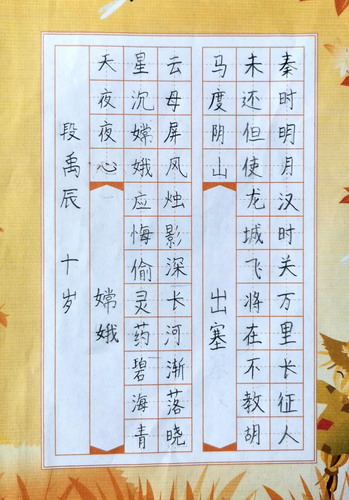 秦时明月汉时关万里长征人
未还但使龙城飞将在不教胡
马度阴山 出塞
云母屏风烛影深长河渐落晓
星沉嫦娥应悔偷灵药碧海青
天夜夜心 嫦娥
段禹辰 十岁